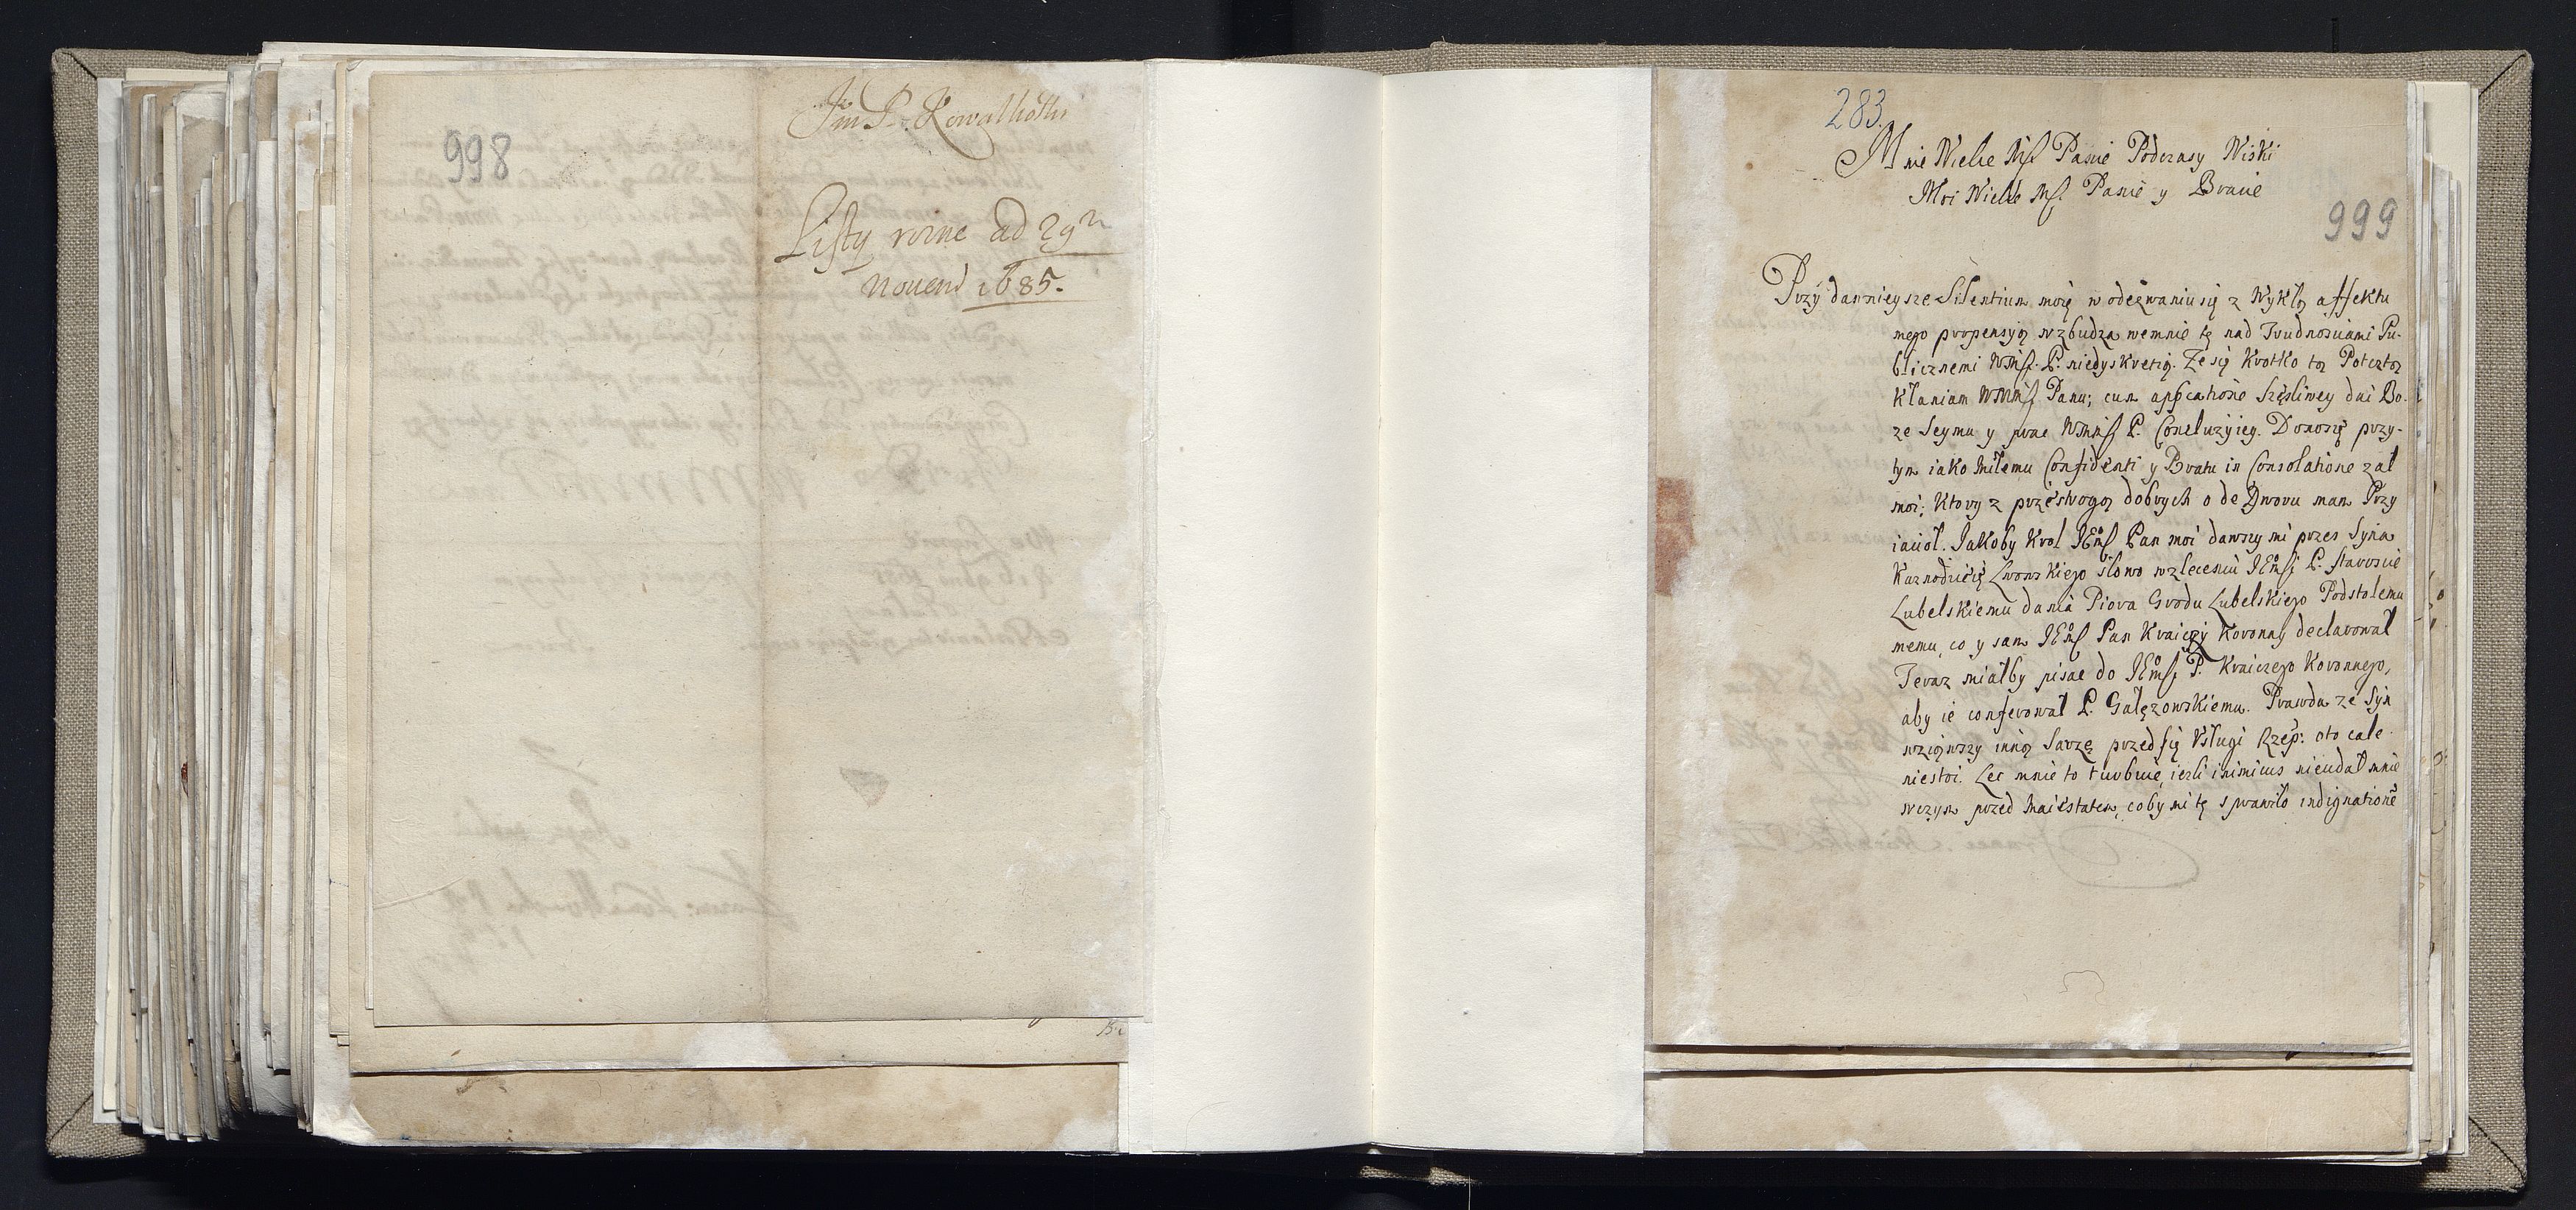 998
Jm P. Kowalkoski
Listy rozne ad 29
novem 1685.
283.
Mnie Wielce Mſ Panie Podczaszy Wiski
Moi Wielce Mſ Panie y Bracie
999
Przy dawnieysze Silentium moię w odezwaniu się z Wykłą affektu
mego propensyą wzbudza wemnie tę nad Trudnosciami Pu-
blicznemi WMſ. P. niedyskretią. Ze się krotko tą Potcztą
kłaniam WMMſ Panu; cum apprecatione Szęsliwey dai Bo-
ze Seymu y prac WMMſ P. Concluzyiey. Donoszę przy-
tym iako Miłemu Confidenti y Bratu in Consolatione zal
moi; Ktory z przestrogą dobrych o de Dworu mam Przy
iaciol. Jakoby Krol JEMſ Pan moi dawszy mi przes Syna
Kaznodzieię Lwowskiego słowo wzleceniu JEMſ P. Staroscie
Lubelskiemu dania Piora Grodu Lubelskiego Podstolemu
memu, co y sam JEMſ Pan Kraiczy Koronny declarował
Teraz miałby pisac do JEMſ P. Kraiczego Koronnego,
aby ie conferował P. Gałęzowskiemu. Prawda ze Syn
wziąwszy inną Sarzę przed się Vsługi Rzep: oto cale
niestoi. Lec mnie to turbuie iezli inimicus nieudał mnie
wczym przed Maiestatem, coby mi tę sprawiło indignationē